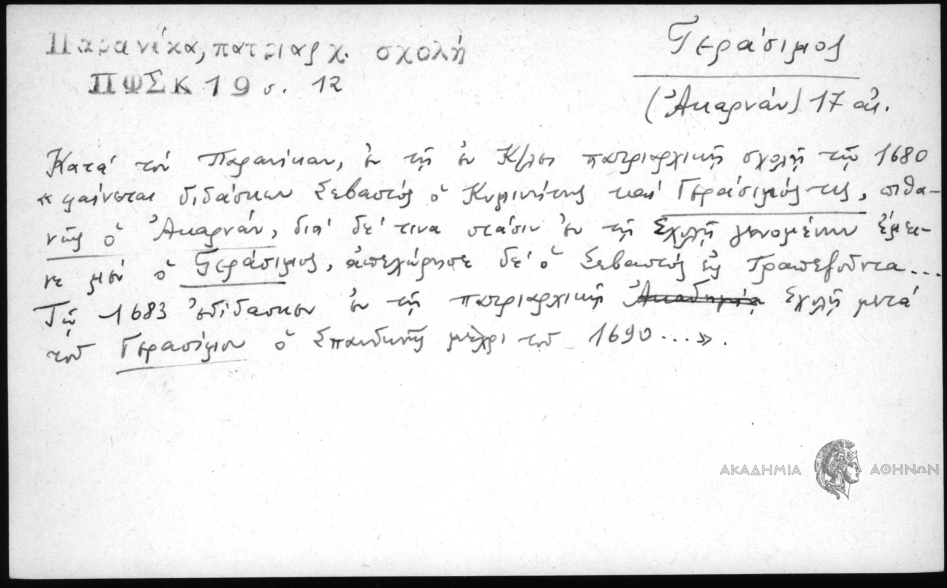 Παρανίκα, πατριαρχ. σχολή
ΠΦΣΚ 19 σ. 12
Γεράσιμος
(Ἀκαρνάν) 17 αἰ.
Κατά τόν Παρανίκαν, ἐν τῇ ἐν Κ/λει πατριαρχικῇ σχολῇ τῷ 1680
« φαίνεται διδάσκων Σεβαστός ὁ Κυμινήτης καί Γεράσιμός τις, πιθα-
νῶς ὁ Ἀκαρνάν, διά δέ τινα στάσιν ἐν τῇ Σχολῇ γενομένην ἔμει-
νε μέν ὁ Γεράσιμος, ἀπεχώρησε δέ ὁ Σεβαστός εἰς Τραπεζοῦντα...
Τῷ 1683 ἐδίδασκεν ἐν τῇ πατριαρχικῇ Ἀκαδημίᾳ Σχολῇ μετά
τοῦ Γερασίμου ὁ Σπανδωνῆς μέχρι τοῦ 1690...».
ΑΚΑΔΗΜΙΑ ΑΘΗΝΩΝ